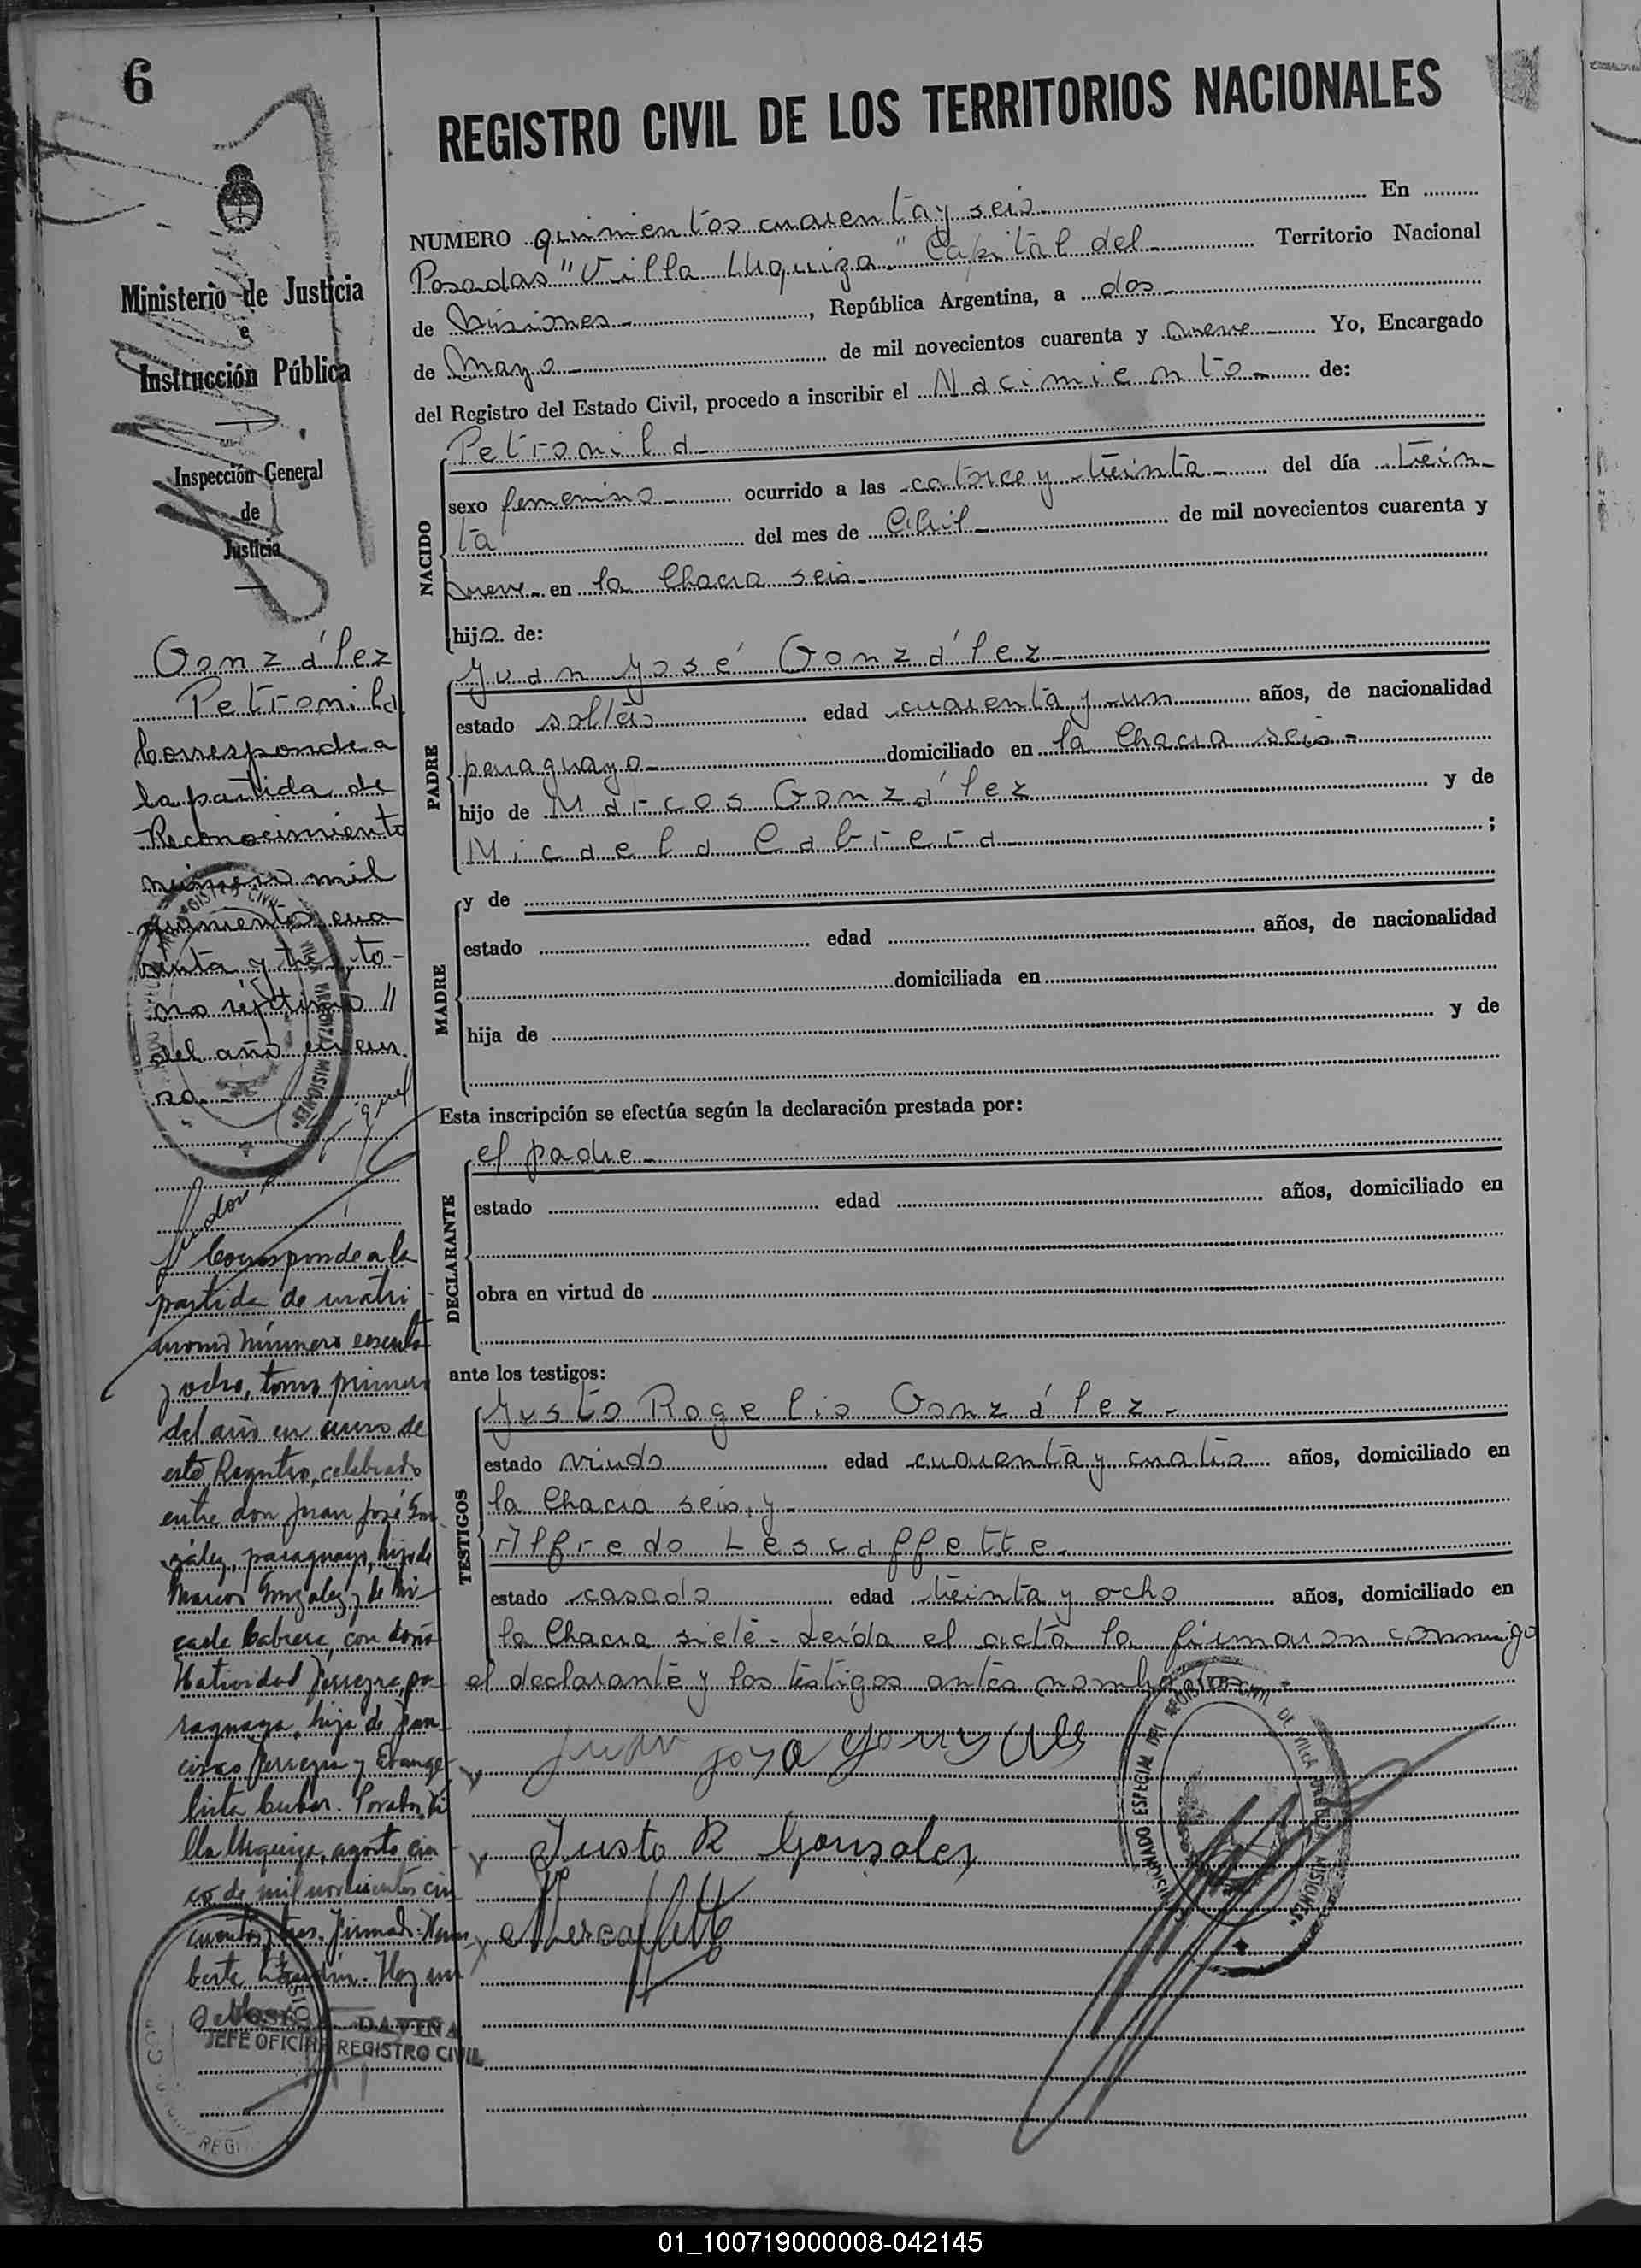 6
REGISTRO CIVIL DE LOS TERRITORIOS NACIONALES
Ministerio de Justicia
e
Instrucción Pública
Inspección General
de
Justicia
González
Petronila
Corresponde a
la partida de
Reconocimiento
número mil
quinientos cua
renta y tres, to-
mo séptimo //
del año en cur
so.-
Corresponde a la
partida de matri
monio número sesenta
y ocho, tomo primero
del año en curso de
este Registro, celebrado
entre don Juan José Gon
zález, paraguayo, hijo de
Marcos González y de Mi
caela Cabrera, con doña
Natividad Ferreyra, pa
raguaya, hija de Fran
cisco Ferreyra y Evange
lista. Posadas, Vi
lla Urquiza, agosto cin
co de mil novecientos cin
cuenta y tres. Firmado:
Hay un
sello
JOSE DAVIÑA
JEFE OFICINA REGISTRO CIVIL
NUMERO quinientos cuarenta y seis En
Posadas "Villa Urquiza" Capital del Territorio Nacional
de Misiones, República Argentina, a dos
de Mayo de mil novecientos cuarenta y nueve Yo, Encargado
del Registro del Estado Civil, procedo a inscribir el Nacimiento de:
NACIDO
Petronila
sexo femenino ocurrido a las catorce y treinta del día trein-
ta del mes de Abril de mil novecientos cuarenta y
nueve en la Chacra seis
hija de:
PADRE
Juan José González
estado soltero edad cuarenta y un años, de nacionalidad
paraguayo domiciliado en la Chacra seis
hijo de Marcos González y de
Micaela Cabrera ;
MADRE
y de
estado edad años, de nacionalidad
domiciliada en
hija de y de
Esta inscripción se efectúa según la declaración prestada por:
DECLARANTE
el padre
estado edad años, domiciliado en
obra en virtud de
ante los testigos:
TESTIGOS
Justo Rogelio González
estado viudo edad cuarenta y cuatro años, domiciliado en
la Chacra seis, y
Alfredo Lescaffette
estado casado edad treinta y ocho años, domiciliado en
la Chacra siete. Leída el acta la firmaron conmigo
el declarante y los testigos antes nombrados
Justo R Gonzalez
01_100719000008-042145